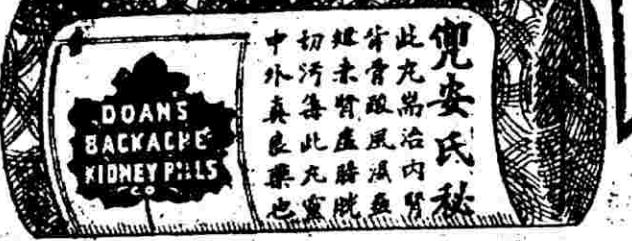 兜安氏秘
此丸耑治內腎
背骨酸風濕
腎虛膀胱
切污毒此丸靈
中外真良藥也
DOAN'S
BACKACHE
KIDNEY PILLS
CO